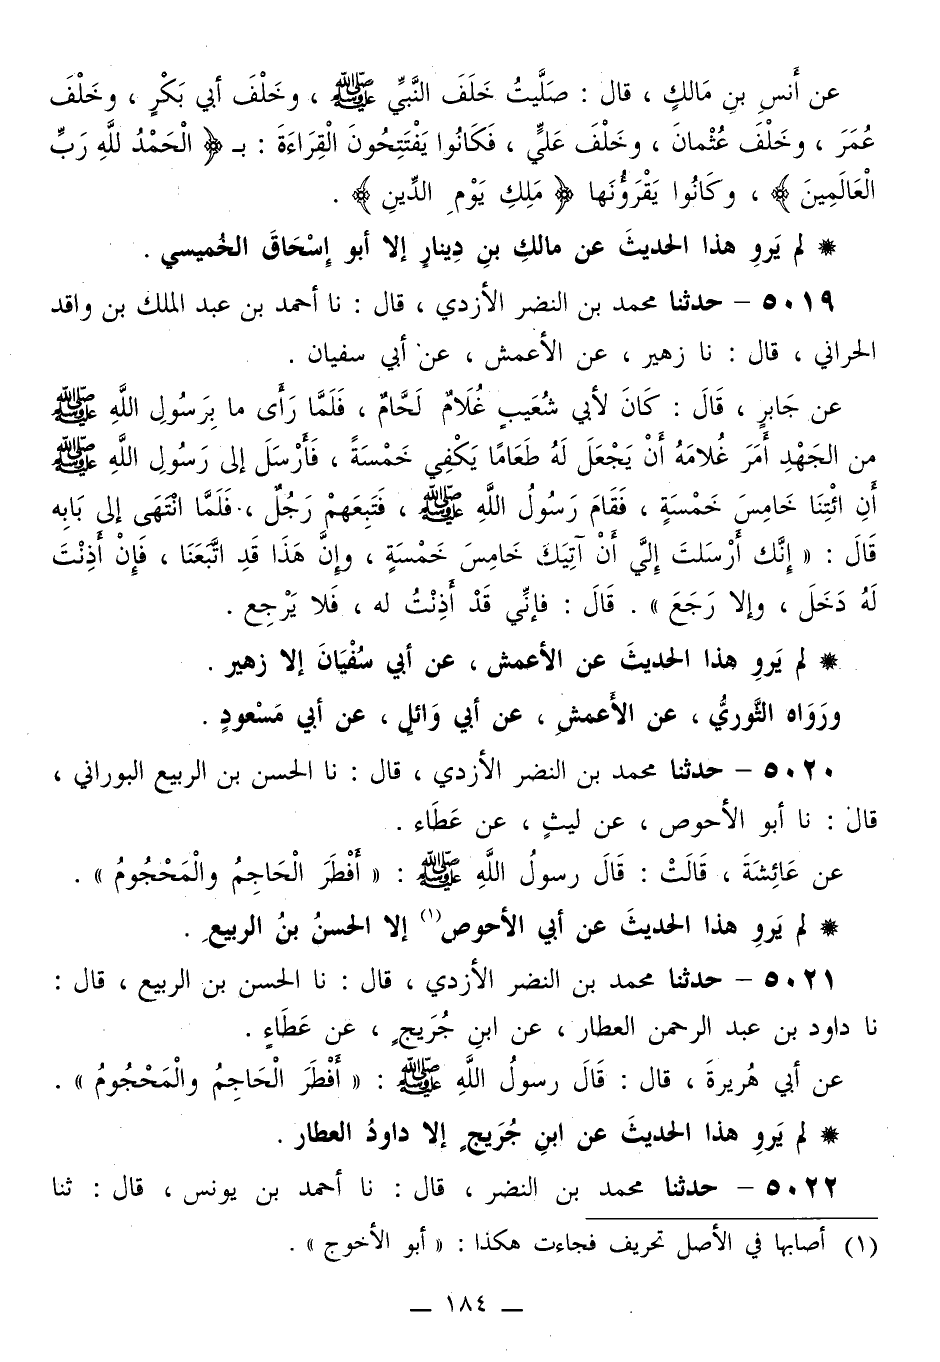 عن أَنسِ بنِ مَالكٍ ، قال : صَلَّيتُ خَلَفَ النَّبيِّ ﷺ ، وخَلْفَ أبي بَكْرٍ ، وخَلْفَ
عُمَرَ ، وخَلْفَ عُثْمانَ ، وخَلْفَ عَليٍّ ، فَكَانُوا يَفْتَتِحُونَ الْقِرَاءَةَ : بـ ﴿ الْحَمْدُ للَّهِ رَبِّ
الْعَالَمِينَ ﴾ ، وكَانُوا يَقْرَؤُنَها ﴿ مَلِكِ يَوْمِ الدِّينِ ﴾ .
* لم يَروِ هذا الحديثَ عن مالكِ بنِ دِينارٍ إلا أبو إِسْحَاقَ الخُميسي .
٥٠١٩ – حدثنا محمد بن النضر الأزدي ، قال : نا أحمد بن عبد الملك بن واقد
الحراني ، قال : نا زهير ، عن الأعمش ، عن أبي سفيان .
عن جَابرٍ ، قَالَ : كَانَ لأبي شُعَيبٍ غُلَامٌ لَحَّامٌ ، فَلَمَّا رَأَى ما بِرَسُولِ اللَّهِ ﷺ
من الجَهْدِ أَمَرَ غُلامَهُ أَنْ يَجْعَلَ لَهُ طَعَامًا يَكْفِي خَمْسَةً ، فَأَرْسَلَ إلى رَسُولِ اللَّهِ ﷺ
أَنِ ائْتِنَا خَامِسَ خَمْسَةٍ ، فَقَامَ رَسُولُ اللَّهِ ﷺ ، فَتَبِعَهمْ رَجُلٌ ، فَلَمَّا انْتَهَى إلى بَابِه
قَالَ : « إِنَّك أَرْسَلتَ إِليَّ أَنْ آتِيَكَ خَامِسَ خَمْسَةٍ ، وإنَّ هَذَا قَدِ اتَّبَعَنَا ، فَإِنْ أَذِنْتَ
لَهُ دَخَلَ ، وإلا رَجَعَ » . قَالَ : فإنِّي قَدْ أَذِنْتُ له ، فَلا يَرْجِع .
* لم يَروِ هذا الحديثَ عن الأعمش ، عن أبي سُفْيَانَ إلا زهير .
ورَوَاه الثَّوريُّ ، عن الأَعمشِ ، عن أبي وَائلٍ ، عن أبي مَسْعودٍ .
٥٠٢٠ – حدثنا محمد بن النضر الأزدي ، قال : نا الحسن بن الربيع البوراني ،
قال : نا أبو الأحوص ، عن ليثٍ ، عن عَطَاء .
عن عَائِشَةَ ، قَالَتْ : قَالَ رسولُ اللَّهِ ﷺ : « أَفْطَرَ الْحَاجِمُ والْمَحْجُومُ » .
* لم يَروِ هذا الحديثَ عن أبي الأحوص(١) إلا الحسنُ بنُ الربيعِ .
٥٠٢١ – حدثنا محمد بن النضر الأزدي ، قال : نا الحسن بن الربيع ، قال :
نا داود بن عبد الرحمن العطار ، عن ابنِ جُرَيجٍ ، عن عَطَاءٍ .
عن أبي هُريرةَ ، قال : قَالَ رسولُ اللَّهِ ﷺ : « أَفْطَرَ الْحَاجِمُ والْمَحْجُومُ » .
* لم يَروِ هذا الحديثَ عن ابنِ جُرَيجٍ إلا داودُ العطار .
٥٠٢٢ – حدثنا محمد بن النضر ، قال : نا أحمد بن يونس ، قال : ثنا
(١) أصابها في الأصل تحريف فجاءت هكذا : « أبو الأخوج » .
— ١٨٤ —